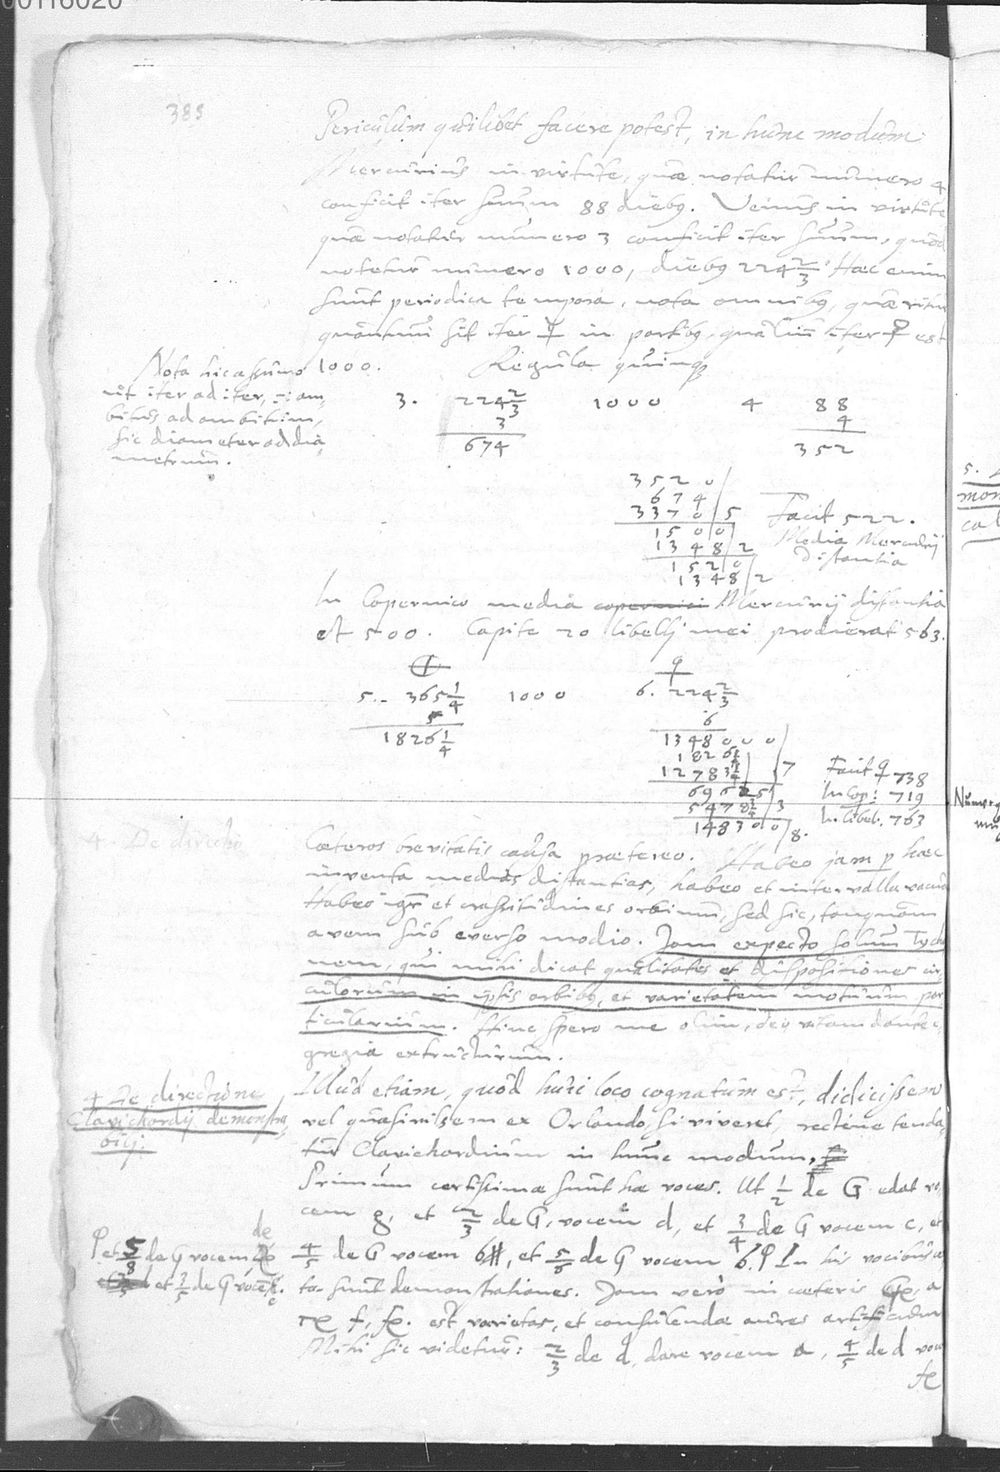 00116020
383
Periculum quilibet facere potest, in hunc modum
Mercurius in virtute, quae notatur numero 4
conficit iter suum 88 dieb9. Venus in virtute
quae notatur numero 3 conficit iter suum, quod
notetur numero 1000, dieb9 224 2/3 Haec enim
sunt periodica tempora, nota omnib9, quaeritur
quantum sit iter ☿ in partib9, qualium iter ♀ est
1000. Regula quinq
Nota hic assumo
ut iter ad iter, i: am
bitus ad ambitum,
sic diameter ad dia
metrum.
3. 224 2/3 1000 4 88
3 4
674 352
3520
674
3370 5
1500
1348 2
1520
1348 2
Facit 522.
Media Mercurij
distantia
In Copernico media Mercurij distantia
est 500. Capite 20 libelli mei prodierat 563.
♀
5. 365 1/4 1000 6. 224 2/3
5 6
1826 1/4 1348000
1826 1/4
1278 3/4 7
6962 5
5478 3/4 3
148300 8.
Facit ♀ 738
In Cop: 719
In libel. 763
4. De directio
Caeteros brevitatis causa praetereo. Habeo jam p haec
inventa medias distantias, habeo et intervalla vacua
Habeo igr et crassitudines orbium, sed sic, tanquam
avem sub everso modio. Jam expecto solum Tycho
nem, qui mihi dicat qualitates et dispositiones cir
culorum in ipsis orbib9, et varietatem motuum par
ticularium. Hinc spero me olim, deo vitam dante,
gregia extructurum.
4 De directione
Clavichordij demonstra
Illud etiam, quod huic loco cognatum est, didicissem
vel quaesivissem ex Orlando, si viveret, rectene tenda
tur Clavichordium in hunc modum.
Primum certissimae sunt hae voces. Ut 1/2 de G edat vo
cem g, et 2/3 de G, vocem d, et 3/4 de G vocem c, et
4/5 de G vocem b#, et 5/6 de G vocem b. In his vocibus
et 5/8 de G vocem
et 3/5 de G vocem
tae sunt demonstrationes. Jam vero in caeteris
f, est varietas, et consulendae aures artificum
Mihi sic videtur: 2/3 de d, dare vocem a, 4/5 de d voce
fe
5.
mon
cal
Numero